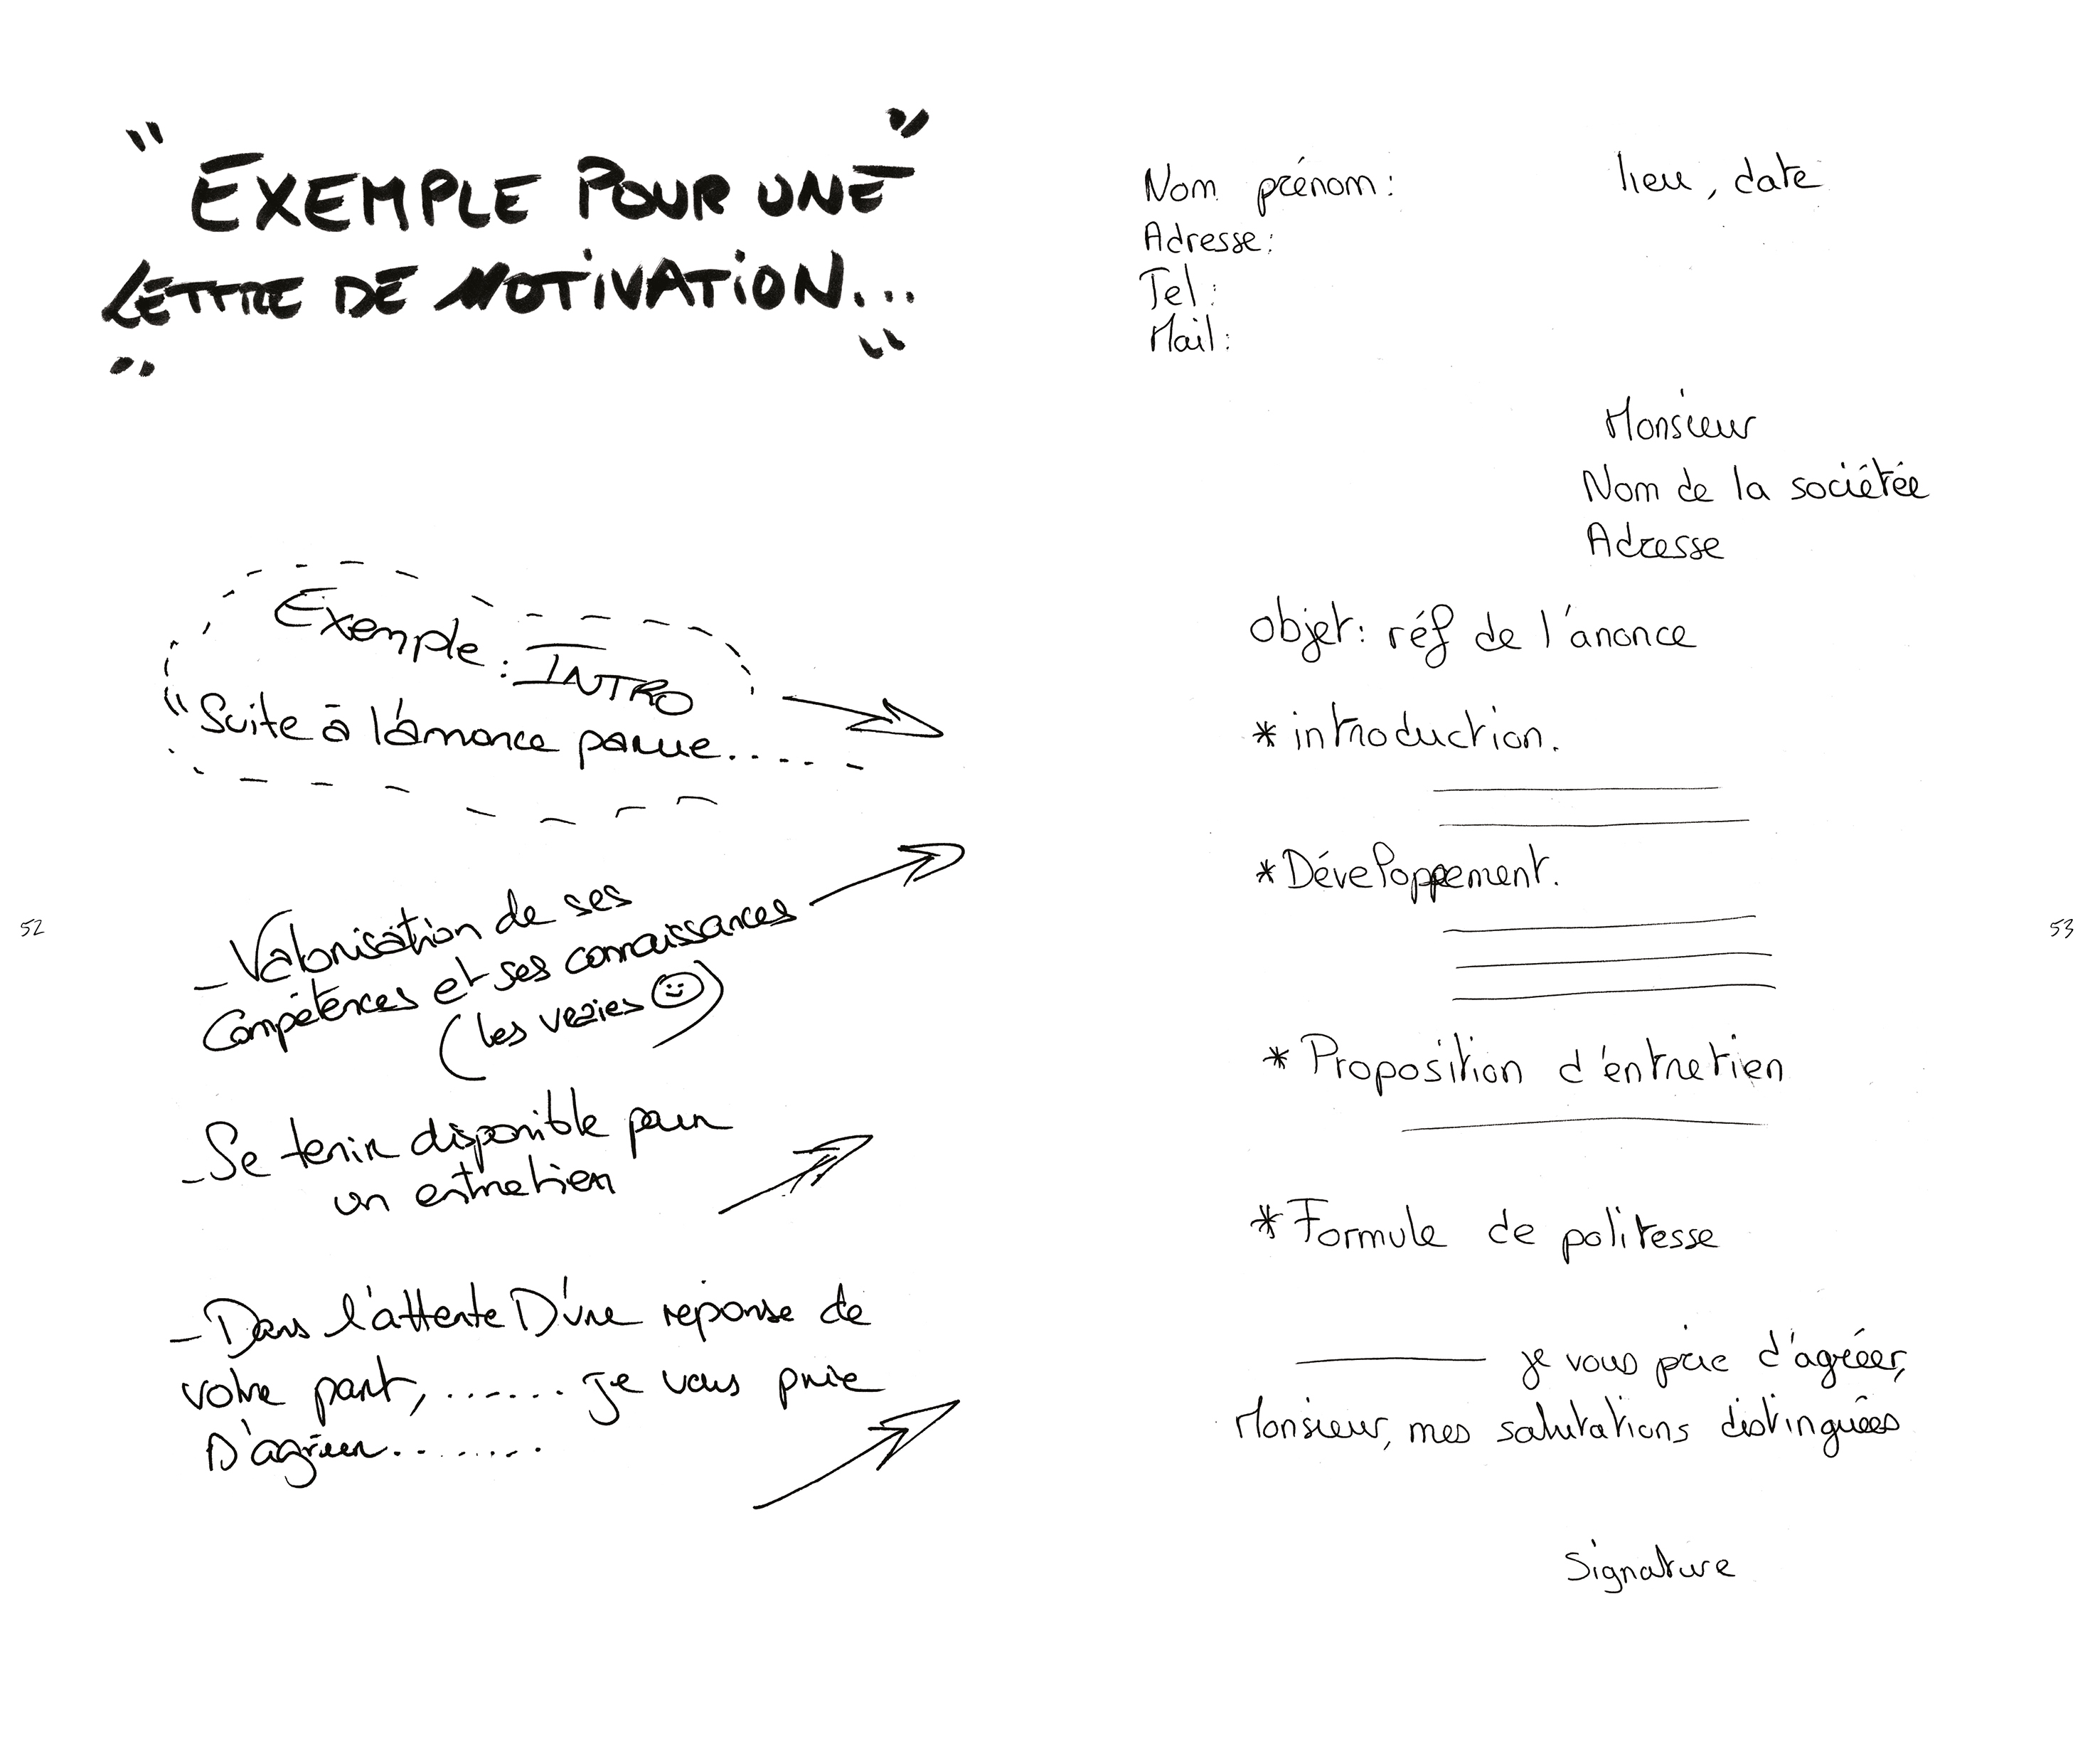 "EXEMPLE POUR UNE"
LETTRE DE MOTIVATION...
Exemple : INTRO
"Suite à l'annonce parue.....
- Valorisation de ses
Compétences et ses connaissances
(les vraies ☺)
- Se tenir disponible pour
un entretien
- Dans l'attente D'une reponse de
votre part, ....... je vous prie
D'agréer........
52
Nom prénom :
lieu, date
Adresse :
Tel :
Mail :
Monsieur
Nom de la sociétée
Adresse
objet : réf de l'anonce
* introduction.
* Développement.
* Proposition d'entretien
* Formule de politesse
je vous prie d'agréer,
Monsieur, mes salutations distinguées
Signature
53